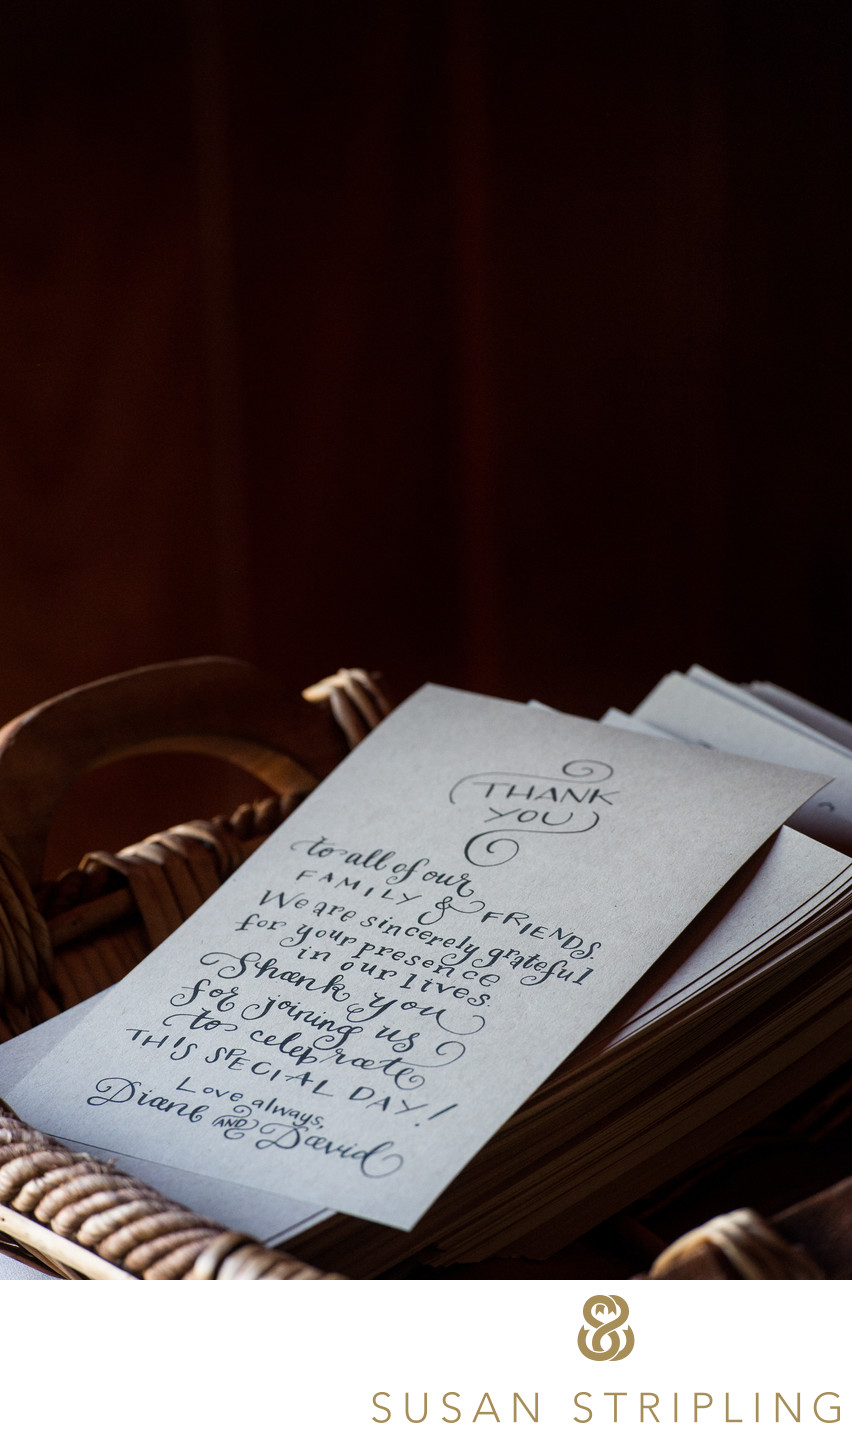 THANK
YOU
to all of our
FAMILY & FRIENDS.
We are sincerely grateful
for your presence
in our lives.
Thank you
for joining us
to celebrate
THIS SPECIAL DAY!
Love always,
Diane AND David
SUSAN STRIPLING